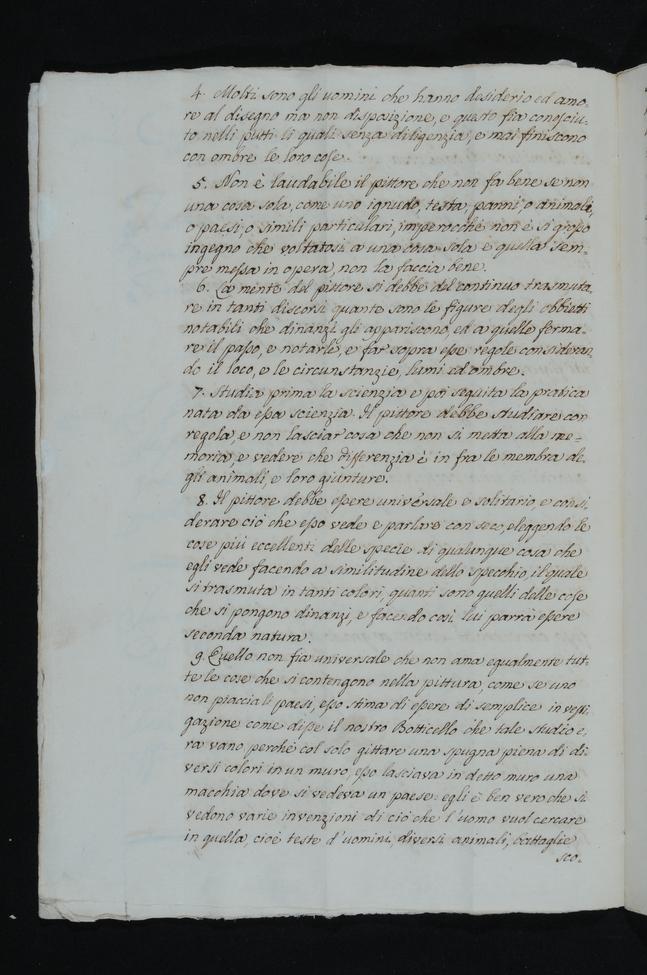 4. Molti sono gli uomini che hanno desiderio ed amo-
re al disegno ma non disposizione, e questo fia conosciu-
to nelli putti li quali senza diligenzia, e mai finiscono
con ombre le loro cose.
5. Non è laudabile il pittore che non fa bene se non
una cosa sola, come uno ignudo, testa, panni, o animali,
o paesi, o simili particulari, imperocchè non è sì grosso
ingegno che voltatosi a una cosa sola e quella sem-
pre messa in opera, non la faccia bene.
6. La mente del pittore si debbe del continuo trasmuta
re in tanti discorsi quante sono le figure degli obbietti
notabili che dinanzi gli appariscono, ed a quelle ferma-
re il passo, e notarle, e far sopra esse regole consideran
do il loco, e le circunstanzie, lumi ed ombre.
7. Studia prima la scienzia e poi seguita la pratica
nata da essa scienzia. Il pittore debbe studiare con
regola, e non lasciar cosa che non si metta alla me-
moria, e vedere che differenzia è in fra le membra de-
gli animali, e loro giunture.
8. Il pittore debbe essere universale e solitario, e consi
derare ciò che esso vede e parlare con seco, eleggendo le
cose più eccellenti delle specie di qualunque cosa che
egli vede facendo a similitudine dello specchio, il quale
si trasmuta in tanti colori, quanti sono quelli delle cose
che si pongono dinanzi, e facendo così lui parrà essere
seconda natura.
9. Quello non fia universale che non ama egualmente tut-
te le cose che si contengono nella pittura, come se uno
non piaccia li paesi, esso stima di essere di semplice investi
gazione come disse il nostro Botticello che tale studio e,
ra vano perchè col solo gittare una spugna piena di di
versi colori in un muro, esso lasciava in detto muro una
macchia dove si vedeva un paese: egli è ben vero che si
vedono varie invenzioni di ciò che l'uomo vuol cercare
in quella, cioè teste d'uomini, diversi animali, battaglie
sco-